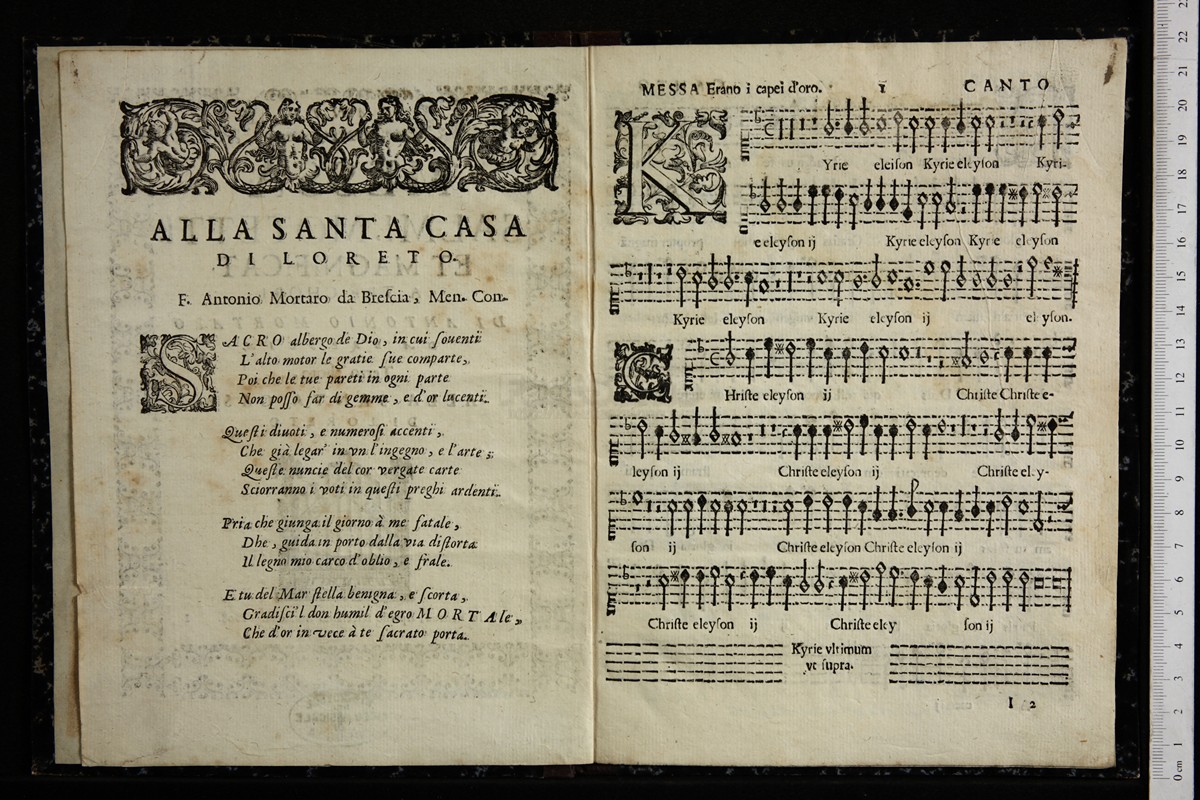 ALLA SANTA CASA
DI LORETO.
F. Antonio Mortaro da Breſcia, Men. Con.
SACRO albergo de Dio, in cui ſouenti
L'alto motor le gratie ſue comparte,
Poi che le tue pareti in ogni parte
Non poſſo far di gemme, e d'or lucenti.
Queſti diuoti, e numeroſi accenti,
Che già legar' in vn l'ingegno, e l'arte;
Queſte nuncie del cor vergate carte
Sciorranno i voti in queſti preghi ardenti.
Pria che giunga il giorno à me fatale,
Dhe, guida in porto dalla via diſtorta
Il legno mio carco d'oblio, e frale.
E tu del Mar ſtella benigna, e ſcorta,
Gradiſci'l don humil d'egro MORTAle,
Che d'or in vece à te ſacrato porta.
MESSA Erano i capei d'oro. 1 CANTO
KYrie eleiſon Kyrie eleyſon Kyri-
e eleyſon ij Kyrie eleyſon Kyrie eleyſon
Kyrie eleyſon Kyrie eleyſon ij eleyſon.
CHriſte eleyſon ij Chriſte Chriſte e-
leyſon ij Chriſte eleyſon ij Chriſte eley-
ſon ij Chriſte eleyſon Chriſte eleyſon ij
Chriſte eleyſon ij Chriſte eley ſon ij
Kyrie vltimum
vt ſupra.
I 2
22
21
20
19
18
17
16
15
14
13
12
11
10
9
8
7
6
5
4
3
2
1
0 cm